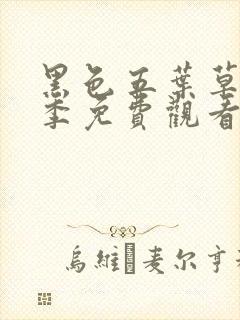 黑色五葉草
季免費觀看
烏維 麦尔亨